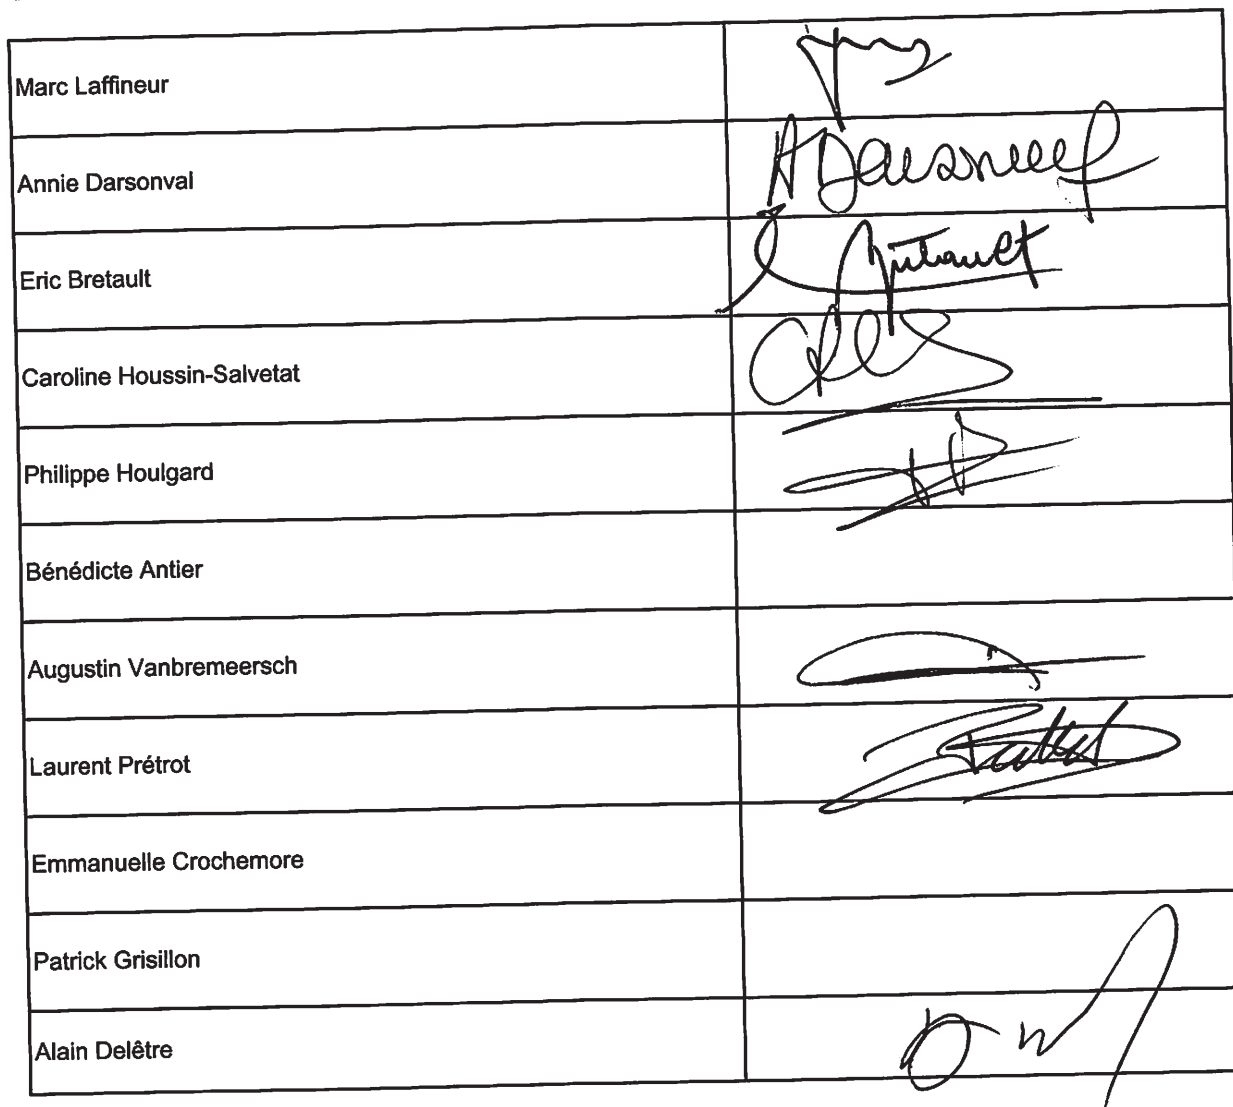 Marc Laffineur
Annie Darsonval
ADarsonval
Eric Bretault
Caroline Houssin-Salvetat
Philippe Houlgard
Bénédicte Antier
Augustin Vanbremeersch
Laurent Prétrot
Emmanuelle Crochemore
Patrick Grisillon
Alain Delêtre